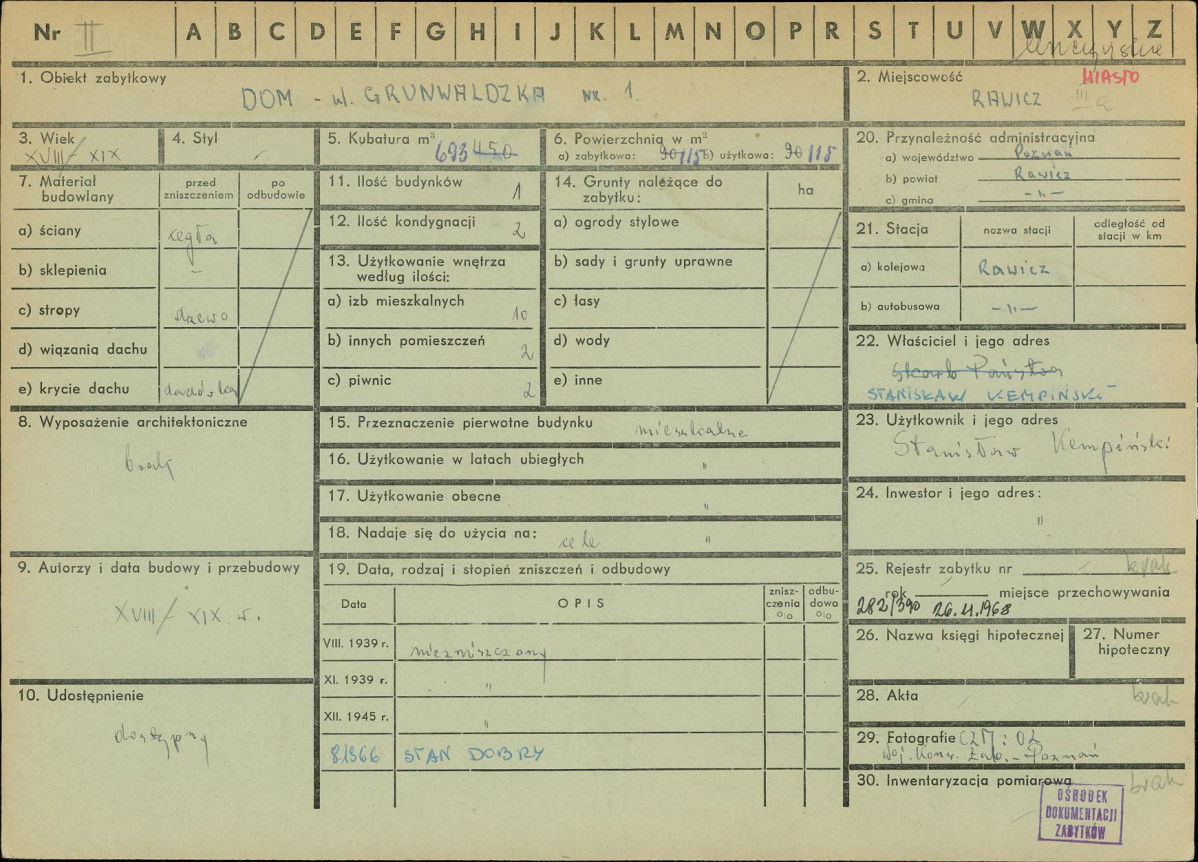 Nr II A B C D E F G H I J K L M N O P R S T U V W X Y Z
1. Obiekt zabytkowy
DOM - ul. GRUNWALDZKA NR. 1.
2. Miejscowość MIASTO
RAWICZ III a
3. Wiek
XVIII/XIX
4. Styl
5. Kubatura m³
693 450
6. Powierzchnia w m²
a) zabytkowa: 90/115 b) użytkowa: 90/115
7. Materiał budowlany
przed zniszczeniem
po odbudowie
a) ściany cegła
b) sklepienia -
c) stropy drzewo
d) wiązania dachu
e) krycie dachu dachówka
8. Wyposażenie architektoniczne
brak
9. Autorzy i data budowy i przebudowy
XVIII/XIX w.
10. Udostępnienie
dostępny
11. Ilość budynków 1
12. Ilość kondygnacji 2
13. Użytkowanie wnętrza
według ilości:
a) izb mieszkalnych 10
b) innych pomieszczeń 2
c) piwnic 2
14. Grunty należące do
zabytku:
ha
a) ogrody stylowe
b) sady i grunty uprawne
c) łasy
d) wody
e) inne
15. Przeznaczenie pierwotne budynku mieszkalne
16. Użytkowanie w latach ubiegłych "
17. Użytkowanie obecne "
18. Nadaje się do użycia na: cele "
19. Data, rodzaj i stopień zniszczeń i odbudowy
Data
OPIS
znisz-
czenia
%
odbu-
dowa
%
VIII. 1939 r. niezniszczony
XI. 1939 r. "
XII. 1945 r. "
8.1966 STAN DOBRY
20. Przynależność administracyjna
a) województwo Poznań
b) powiat Rawicz
c) gmina -"-
21. Stacja
nazwa stacji
odległość od
stacji w km
a) kolejowa RAWICZ
b) autobusowa -"-
22. Właściciel i jego adres
Skarb Państwa
STANISŁAW KEMPIŃSKI
23. Użytkownik i jego adres
Stanisław Kempiński
24. Inwestor i jego adres:
"
25. Rejestr zabytku nr brak
rok miejsce przechowywania
282/390 26.11.1968
26. Nazwa księgi hipotecznej
27. Numer
hipoteczny
28. Akta brak
29. Fotografie CZM: OZ
Woj. Kons. Zab. - Poznań
30. Inwentaryzacja pomiarowa brak
OŚRODEK
DOKUMENTACJI
ZABYTKÓW